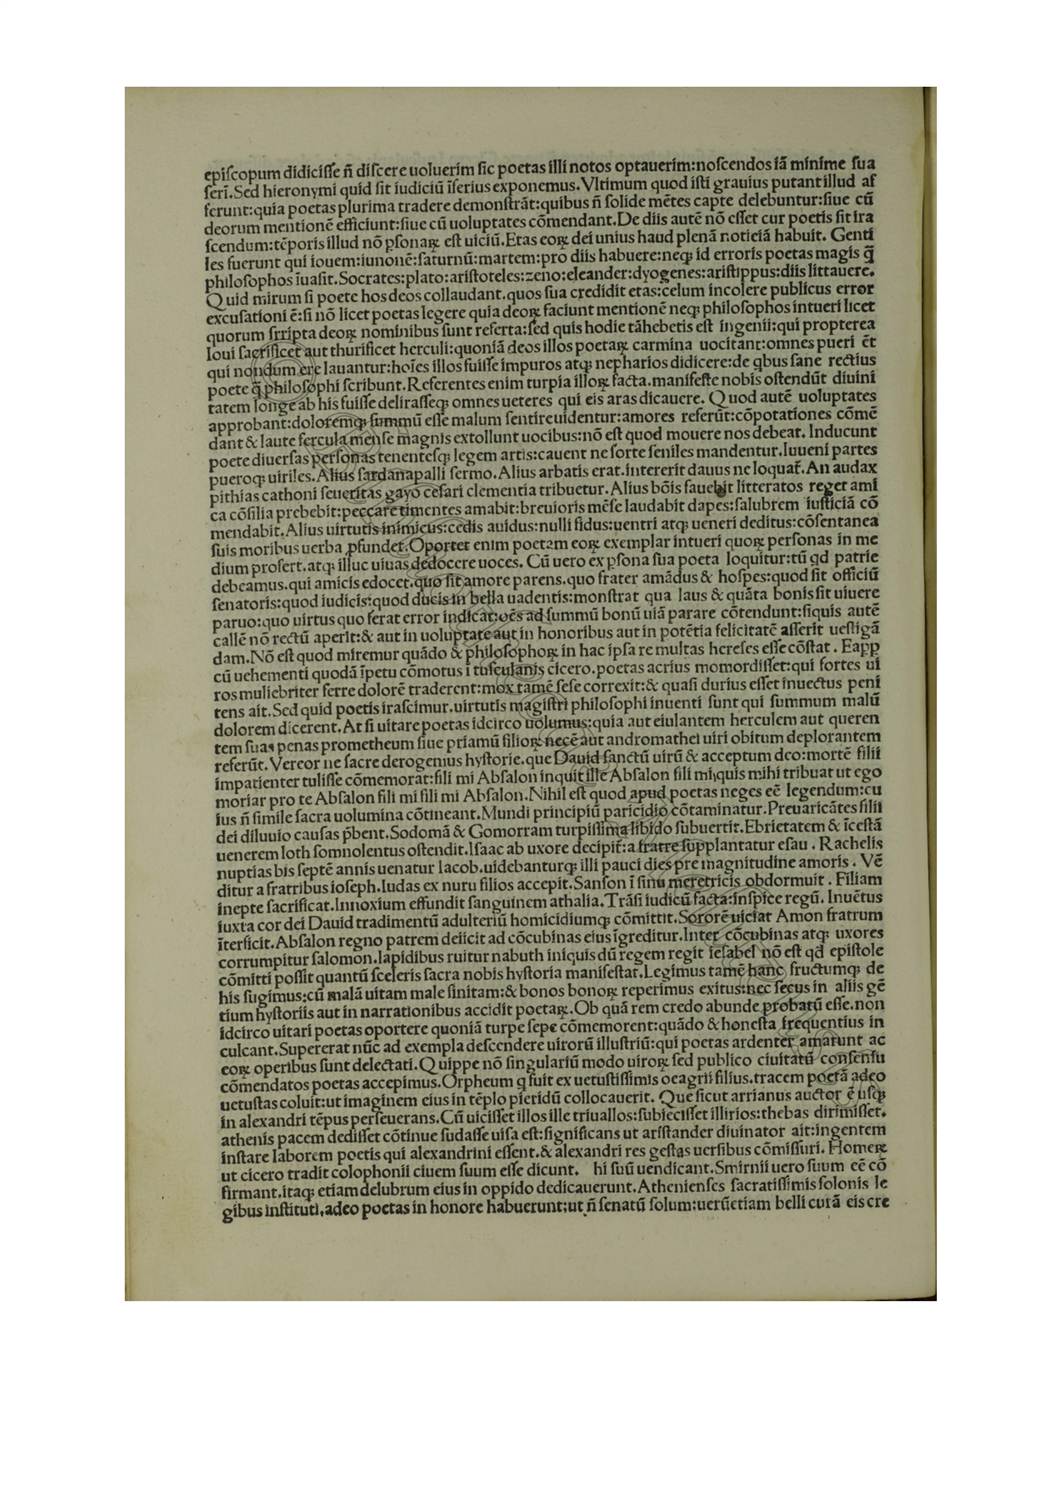 episcopum didicisse ñ discere uoluerim sic poetas illi notos optauerim:noscendos iã minime sua
seri.Sed hieronymi quid sit iudiciũ ĩferius exponemus.Vltimum quod isti grauius putant illud af
ferunt:quia poetas plurima tradere demonstrãt:quibus ñ solide mẽtes capte delebuntur:siue cũ
deorum mentionẽ efficiunt:siue cũ uoluptates cõmendant.De diis autẽ nõ esset cur poetis sit ira
scendum:tẽporis illud nõ ꝑsonaꝝ est uiciũ.Etas eoꝝ dei unius haud plenã noticiã habuit. Genti
les fuerunt qui iouem:iunonẽ:saturnũ:martem:pro diis habuere:neqꝫ id erroris poetas magis q̃
philosophos ĩuasit.Socrates:plato:aristoteles:zeno:eleander:dyogenes:aristippus:diis littauere.
Quid mirum si poete hos deos collaudant.quos sua credidit etas:celum incolere publicus error
excusationi ẽ:si nõ licet poetas legere quia deoꝝ faciunt mentionẽ neqꝫ philosophos intueri licet
quorum srripta deoꝝ nominibus sunt referta:sed quis hodie tã hebetis est ingenii:qui propterea
Ioui sacrificet aut thurificet herculi:quoniã deos illos poetaꝝ carmina uocitant:omnes pueri ẽt
qui nondum ere lauantur:hoĩes illos fuisse impuros atqꝫ nepharios didicere:de qbus sane rectius
poete q̃ philosophi scribunt.Referentes enim turpia illoꝝ facta.manifeste nobis ostendũt diuini
tatem longe ab his fuisse delirasseqꝫ omnes ueteres qui eis aras dicauere. Quod autẽ uoluptates
approbant:doloremqꝫ summũ esse malum sentire uidentur:amores referũt:cõpotationes cõmẽ
dant & laute fercula mense magnis extollunt uocibus:nõ est quod mouere nos debeat. Inducunt
poete diuersas personas tenentesqꝫ legem artis:cauent ne forte seniles mandentur.Iuueni partes
pueroqꝫ uiriles.Alius sardanapalli sermo.Alius arbatis erat.intererit dauus ne loquat̃.An audax
pithias cathoni seueritas gayo cesari clementia tribuetur.Alius bõis fauebit litteratos reget ami
ca cõsilia prebebit:peccare timentes amabit:breuioris mẽse laudabit dapes:salubrem iusticiã cõ
mendabit.Alius uirtutis inimicus:cedis auidus:nulli fidus:uentri atqꝫ ueneri deditus:cõsentanea
suis moribus uerba ꝓfundet.Oportet enim poetam eoꝝ exemplar intueri quoꝝ personas in me
dium profert.atqꝫ illuc uiuas dedocere uoces. Cũ uero ex ꝑsona sua poeta loquitur:tũ qd patrie
debeamus.qui amicis edocet.quo sit amore parens.quo frater amãdus & hospes:quod sit officiũ
senatoris:quod iudicis:quod ducis in bella uadentis:monstrat qua laus & quãta bonis sit uiuere
paruo:quo uirtus quo ferat error indicat:oẽs ad summũ bonũ uiã parare cõtendunt:siquis autẽ
callẽ nõ rectũ aperit:& aut in uoluptate aut in honoribus aut in potẽtia felicitatẽ asserit uestigã
dam.Nõ est quod miremur quãdo & philosophoꝝ in hac ipsa re multas hereses esse cõstat. Eaꝓꝓ
cũ uehementi quodã ĩpetu cõmotus ĩ tusculanis cicero.poetas acrius momordisset:qui fortes ui
ros muliebriter ferre dolorẽ traderent:mox tamẽ sese correxit:& quasi durius esset inuectus peni
tens ait.Sed quid poetis irascimur.uirtutis magistri philosophi inuenti sunt qui summum malũ
dolorem dicerent.At si uitare poetas idcirco uolumus:quia aut eiulantem herculem aut queren
tem suas penas prometheum siue priamũ filioꝝ necẽ aut andromathei uiri obitum deplorantem
referũt.Vereor ne sacre derogemus hystorie.que Dauid sanctũ uirũ & acceptum deo:mortẽ filii
impatienter tulisse cõmemorat:fili mi Absalon inquit ille Absalon fili mi,quis mihi tribuat ut ego
moriar pro te Absalon fili mi fili mi Absalon.Nihil est quod apud poetas neges eẽ legendum:cu
ius ñ simile sacra uolumina cõtineant.Mundi principiũ paricidio cõtaminatur.Preuaricãtes filii
dei diluuio causas p̃bent.Sodomã & Gomorram turpissima libido subuertit.Ebrietatem & ĩcestã
uenerem loth somnolentus ostendit.Isaac ab uxore decipit̃:a fratre supplantatur esau . Rachelis
nuptias bis septẽ annis uenatur Iacob.uidebanturqꝫ illi pauci dies pre magnitudine amoris . Vẽ
ditur a fratribus ioseph.Iudas ex nuru filios accepit.Sanson ĩ sinu meretricis obdormuit . Filiam
inepte sacrificat.Innoxium effundit sanguinem athalia.Trãsi iudicũ facta:inspice regũ. Inuẽtus
iuxta cor dei Dauid tradimentũ adulteriũ homicidiumqꝫ cõmittit.Sororẽ uiciat Amon fratrum
ĩterficit.Absalon regno patrem deiicit ad cõcubinas eius ĩgreditur.Inter cõcubinas atqꝫ uxores
corrumpitur salomon.lapidibus ruitur nabuth iniquis dũ regem regit iesabel nõ est qd epistole
cõmitti possit quantũ sceleris sacra nobis hystoria manifestat.Legimus tamẽ hanc fructumqꝫ de
his sugimus:cũ malã uitam male finitam:& bonos bonoꝝ reperimus exitus:nec secus in aliis gẽ
tium hystoriis aut in narrationibus accidit poetaꝝ.Ob quã rem credo abunde probatũ esse.non
idcirco uitari poetas oportere quoniã turpe sepe cõmemorent:quãdo & honesta frequentius in
culcant.Supererat nũc ad exempla descendere uirorũ illustriũ:qui poetas ardenter amarunt ac
eoꝝ operibus sunt delectati.Quippe nõ singulariũ modo uiroꝝ sed publico ciuitatũ consensu
cõmendatos poetas accepimus.Orpheum q fuit ex uetustissimis oeagrii filius.tracem poetã adeo
uetustas coluit:ut imaginem eius in tẽplo pieridũ collocauerit. Que sicut arrianus auctor ẽ usqꝫ
in alexandri tẽpus perseuerans.Cũ uicisset illos ille triuallos:subiecisset illirios:thebas dirimisset.
athenis pacem dedisset cõtinue sudasse uisa est:significans ut aristander diuinator ait:ingentem
instare laborem poetis qui alexandrini essent.& alexandri res gestas uersibus cõmissuri. Homeꝝ
ut cicero tradit colophonii ciuem suum esse dicunt. hi suũ uendicant.Smirnii uero suum eẽ cõ
firmant.itaqꝫ etiam delubrum eius in oppido dedicauerunt.Athenienses sacratissimis solonis le
gibus instituti,adeo poetas in honore habuerunt:ut ñ senatũ solum:uerũetiam belli curã eis cre